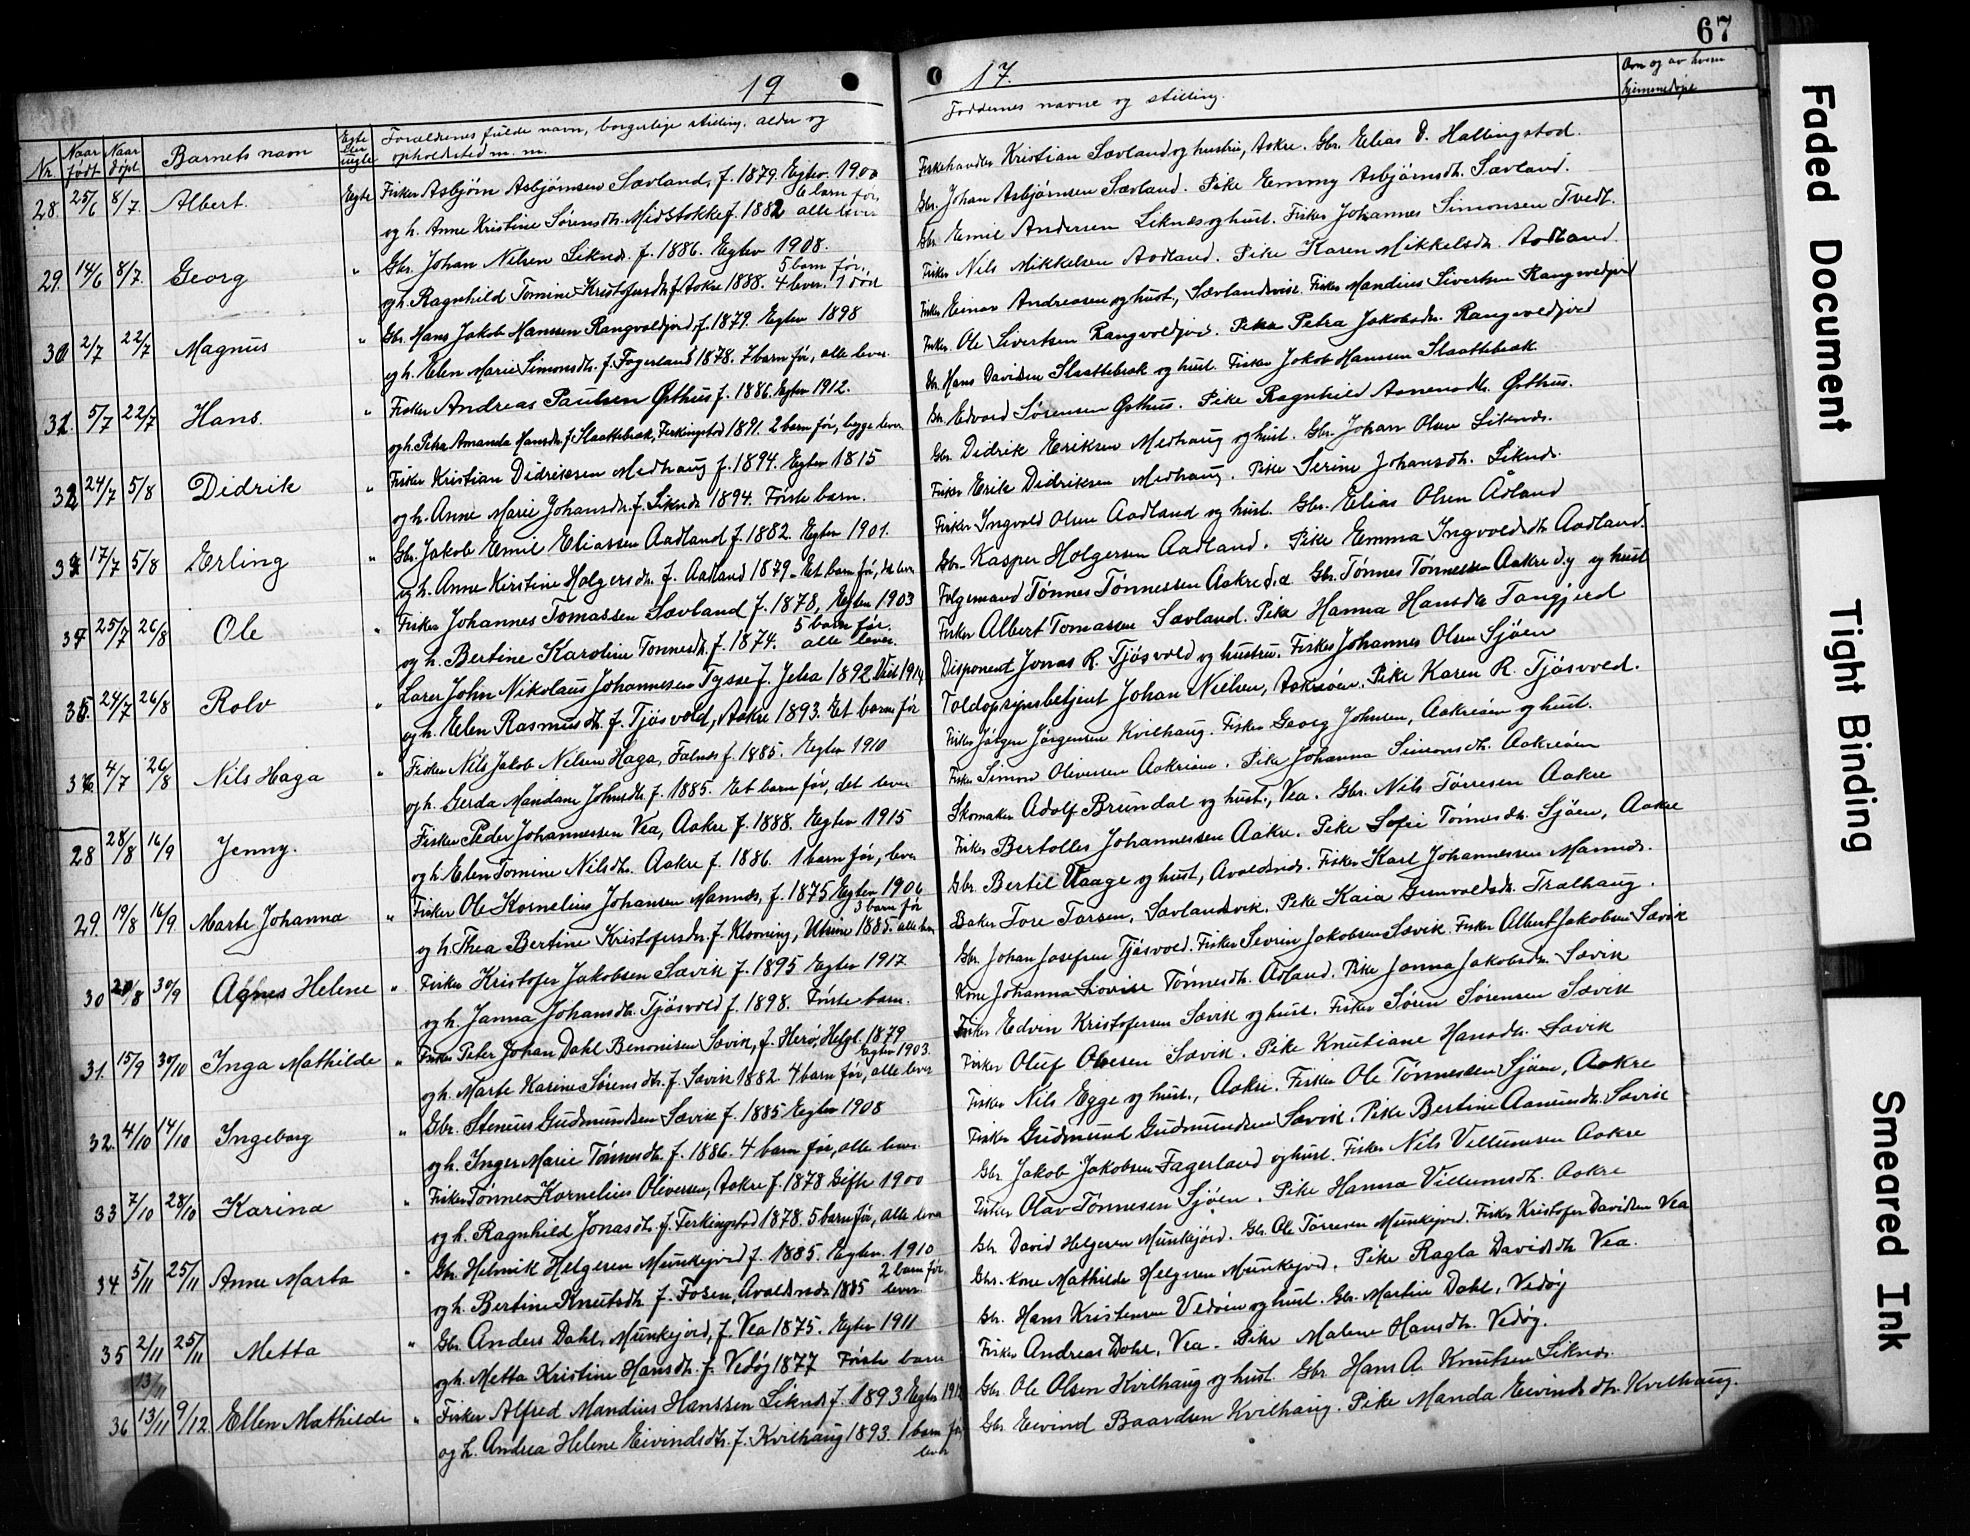 67
19
17.
Nr.
Naar født
Naar døpt
Barnets navn
Egte eller uegte
Forældrenes fulde navn, borgerlige stilling, alder og
opholdsted m. m.
Faddernes navne og stilling.
Om og av hvem
hjemmedøpt
28. 25/6 8/7. Albert. Egte Fisker Asbjørn Asbjørnsen Sævland, f. 1879. Egtev. 1900
6 barn før,
og h. Anne Kristine Sørensdtr. Midstokke f. 1882 alle lever
Fiskehandler Kristian Sævland og hustru, Aakre. Gbr. Elias D. Hallingstad.
Gbr. Johan Asbjørnsen Sævland. Pike Emmy Asbjørnsdtr. Sævland.
29. 14/6 8/7. Georg " Gbr. Johan Nilsen Liknes f. 1886. Egtev 1908.
5 barn før.
og h. Ragnhild Tomine Kristofersdtr. f. Aakre 1888. 4 lever. 1 død
Gbr. Emil Andersen Liknes og hust. Fisker Johannes Simonsen Tvedt.
Fisker Nils Mikkelsen Aadland. Pike Karen Mikkelsdtr. Aadland.
30 2/7 22/7 Magnus " Gbr. Hans Jakob Hansen Rangvoldjord, f. 1879. Egtev 1898
og h. Elen Marie Simonsdtr. f. Fagerland 1878. 7 barn før, alle lever.
Fisker Einar Andreasen og hust, Sævlandsvik. Fisker Mandius Sivertsen Rangvoldjord
Fisker Ole Sivertsen Rangvoldjord. Pike Petra Jakobsdtr. Rangvoldjord
31. 5/7 22/7 Hans. " Fisker Andreas Paulsen Østhus f. 1886. Egtev 1912.
og h. Petra Amanda Hansdtr. f. Slaattebrak, Ferkingstad 1891. 2 barn før, begge lever
Gbr. Hans Davidsen Slaattebrak og hust. Fisker Jakob Hansen Slaattebrak
Gbr. Edvard Sørensen Østhus. Pike Ragnhild Asmensdtr. Østhus.
32 24/7 5/8 Didrik " Fisker Kristian Didriksen Medhaug f. 1894. Egtev 1815
og h. Anne Marie Johansdtr. f. Liknes 1894. Første barn.
Gbr. Didrik Eriksen Medhaug og hust. Gbr. Johan Olsen Liknes.
Fisker Erik Didriksen Medhaug. Pike Serine Johansdtr. Liknes.
33 17/7 5/8 Erling " Gbr. Jakob Emil Eliassen Aadland f. 1882. Egtev 1901.
og h. Anne Kirstine Holgersdtr. f. Aadland 1879. Et barn før, det lever
Fisker Ingvald Olsen Aadland og hust. Gbr. Elias Olsen Ådland
Gbr. Kasper Holgersen Aadland. Pike Emma Ingvoldsdtr. Aadland.
34 25/7 26/8 Ole " Fisker Johannes Tomassen Sævland f. 1878, Egtev 1903
5 barn før.
og h. Bertine Karoline Tonnesdtr. f. 1874. alle lever.
Følgemand Tønnes Tønnessen Aakre d. e. Gbr. Tønnes Tønnessen Aakre d. y og hust
Fisker Albert Tomassen Sævland. Pike Hanna Hansdtr. Tangjerd
35. 24/7 26/8 Rolv " Lærer John Nikolaus Johannesen Tysse f. Jelsa 1892 Viet 1914
og h. Elen Rasmusdtr. f. Tjøsvold, Aakre 1893. Et barn før
Disponent Jonas R. Tjøsvold og hustru. Fisker Johannes Olsen Sjøen
Toldopsynsbetjent Johan Nielsen, Aakreøen. Pike Karen R. Tjøsvold.
36. 4/7 26/8 Nils Haga " Fisker Nils Jakob Nelsen Haga, Falnes f. 1885. Egtev 1910
og h. Gerda Mandane Johnsdtr. f. 1885. Et barn før, det lever
Fisker Jørgen Jørgensen Kvilhaug. Fisker Georg Johnsen, Aakreøen og hust.
Fisker Simon Oliversen Aakreøen. Pike Johanna Simonsdtr. Aakreøen
28 28/8 16/9 Jenny. Fisker Peder Johannessen Vea, Aakre f. 1888. Egtev 1915
og h. Elen Tomine Nilsdtr. Aakre f. 1886. 1 barn før, lever
Skomaker Adolf Brundal og hust., Vea. Gbr. Nils Tørresen Aakre
Fisker Bertolles Johannessen Aakre. Pike Sofie Tønnesdtr. Sjøen, Aakre
29. 19/8 16/9 Marte Johanna " Fisker Ole Kornelius Johansen Mannes, f. 1875 Egtev 1906
3 barn før
og h. Thea Bertine Kristofersdtr. f. Klovning, Utsire 1885. alle lever
Gbr. Bertil Vaage og hust, Avaldsnes. Fisker Karl Johannessen Mannes.
Baker Tore Torsen, Sævlandsvik. Pike Kaia Gunvaldsdtr. Tralhaug.
30 20/8 30/9 Agnes Helene " Fisker Kristofer Jakobsen Sævik f. 1895 Egtev 1917
og h. Janna Johansdtr. Tjøsvold f. 1898. Første barn.
Gbr. Johan Josefsen Tjøsvold. Fisker Sevrin Jakobsen Sævik. Fisker Albert Jakobsen Sævik
Kone Johanna Lovise Tønnesdtr. Ådland. Pike Janna Jakobsdtr. Sævik
31. 15/9 30/10 Inga Mathilde " Fisker Peter Johan Dahl Benonisen Sævik, f. Herø, Helgl. 1879
Egtev 1903.
og h. Marte Karine Sørensdtr. f. Sævik 1882. 4 barn før, alle lever
Fisker Edvin Kristofersen Sævik og hust. Fisker Søren Sørensen Sævik
Fisker Oluf Olsen Sævik. Pike Knutiane Hansdtr. Sævik
32. 4/10 14/10 Ingeborg " Gbr. Stenius Gudmundsen Sævik f. 1885 Egtev 1908
og h. Inger Marie Tønnesdtr. f. 1886. 4 barn før, alle lever.
Fisker Nils Egge og hust., Aakre. Fisker Ole Tønnessen Sjøen, Aakre
Fisker Gudmund Gudmundsen Sævik. Pike Bertine Aamundsdtr. Sævik
33 7/10 28/10 Karina " Fisker Tønnes Kornelius Oliversen, Aakre f. 1878 Gifte 1900
og h. Ragnhild Jonasdtr. f. Ferkingstad 1878. 5 barn før, alle lever
Gbr. Jakob Jakobsen Fagerland og hust. Fisker Nils Villumsen Aakre
Fisker Olav Tønnesen Sjøen. Pike Hanna Villumsdtr. Aakre
34 5/11 25/11 Anne Marta " Gbr. Helmik Helgesen Munkejord f. 1885. Egtev. 1910
2 barn før,
og h. Bertine Knutsdtr. f. Fosen, Avaldsnes 1885 lever.
Gbr. David Helgesen Munkejord. Gbr. Ole Tørresen Munkejord. Fisker Kristofer Davidsen Vea
Gbr.-kone Mathilde Helgesen Munkejord. Pike Ragla Davidsdtr. Vea.
35 2/11 25/11 Metta " Gbr. Anders Dahl, Munkejord, f. Vea 1875. Egtev 1911
og h. Metta Kristine Hansdtr. f. Vedøy 1877 Første barn
Gbr. Hans Kristensen Vedøen og hust. Gbr. Martin Dahl, Vedøy
Fisker Andreas Dahl, Vea. Pike Malene Hansdtr. Vedøy.
36 13/11 9/12. Ellen Mathilde " Fisker Alfred Mandius Hanssen Liknes f. 1893 Egtev 1912
og h. Andrea Helene Eivindsdtr. f. Kvilhaug 1893. 1 barn før,
lever
Gbr. Ole Olsen Kvilhaug og hust. Gbr. Hans A. Knutsen Liknes.
Gbr. Eivind Baardsen Kvilhaug. Pike Manda Eivindsdtr. Kvilhaug.
Faded Document
Tight Binding
Smeared Ink